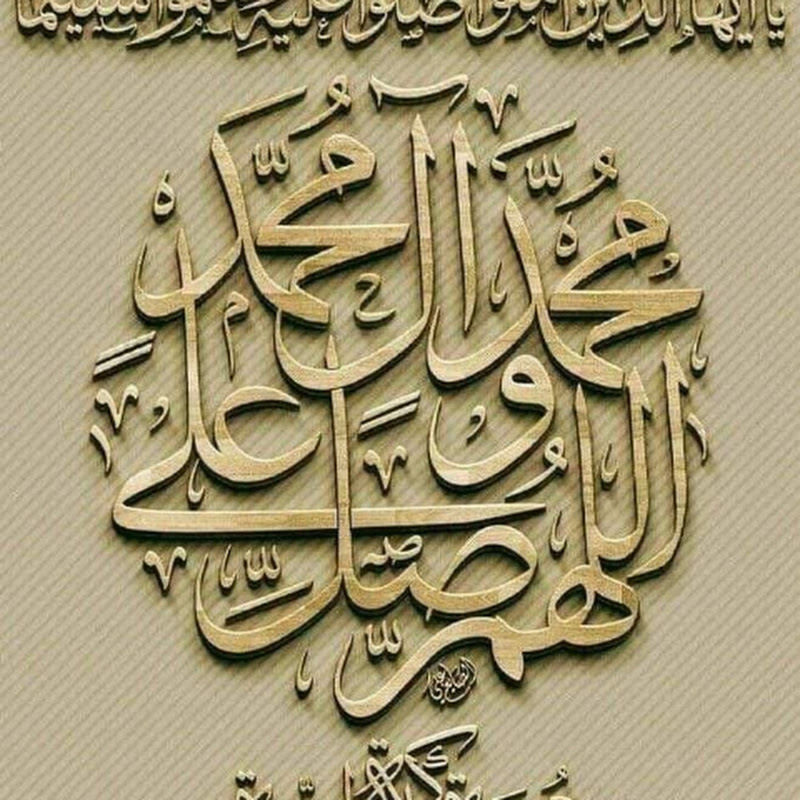 يا أيها الذين آمنوا صلوا عليه وسلموا تسليما
اللهم صل على محمد وآل محمد